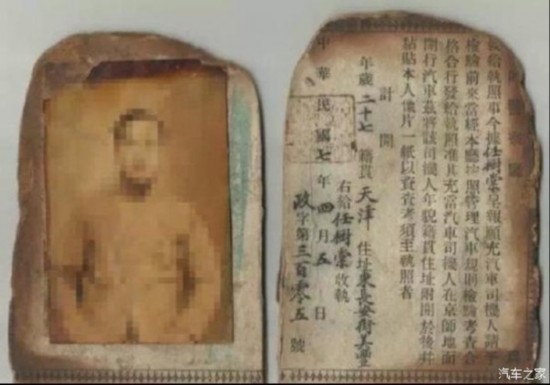 發給執照事今據任樹棠呈報願充汽車司機人請予
檢驗前來當經本廳按照管理汽車規則檢驗考查合
格合行發給執照准其充當汽車司機人在京師地面
開行汽車茲將該司機人年貌籍貫住址附開於後并
粘貼本人像片一紙以資查考須至執照者
計開
年歲二十七 籍貫天津 住址東長安街美豐
右給任樹棠收執
中華民國七年四月五日
政字第三百零五號
汽车之家